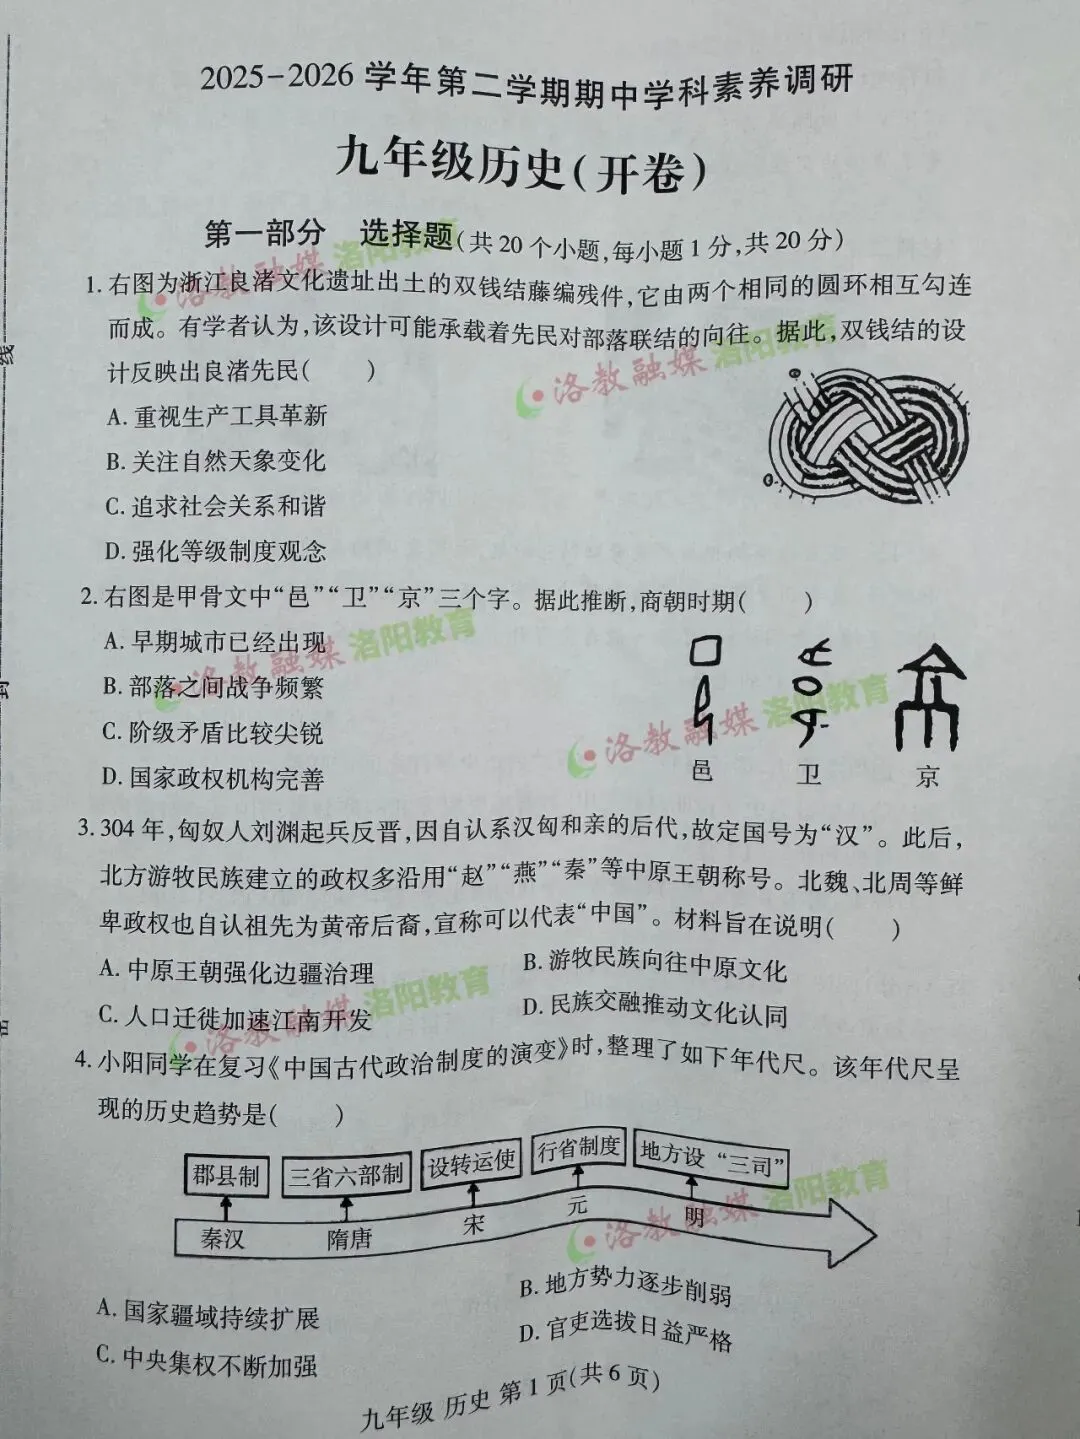 2025-2026 学年第二学期期中学科素养调研
九年级历史(开卷)
第一部分 选择题(共 20 个小题,每小题 1 分,共 20 分)
1. 右图为浙江良渚文化遗址出土的双钱结藤编残件,它由两个相同的圆环相互勾连
而成。有学者认为,该设计可能承载着先民对部落联结的向往。据此,双钱结的设
计反映出良渚先民( )
A. 重视生产工具革新
B. 关注自然天象变化
C. 追求社会关系和谐
D. 强化等级制度观念
2. 右图是甲骨文中“邑”“卫”“京”三个字。据此推断,商朝时期( )
A. 早期城市已经出现
B. 部落之间战争频繁
C. 阶级矛盾比较尖锐
D. 国家政权机构完善
邑 卫 京
3. 304 年,匈奴人刘渊起兵反晋,因自认系汉匈和亲的后代,故定国号为“汉”。此后,
北方游牧民族建立的政权多沿用“赵”“燕”“秦”等中原王朝称号。北魏、北周等鲜
卑政权也自认祖先为黄帝后裔,宣称可以代表“中国”。材料旨在说明( )
A. 中原王朝强化边疆治理 B. 游牧民族向往中原文化
C. 人口迁徙加速江南开发 D. 民族交融推动文化认同
4. 小阳同学在复习《中国古代政治制度的演变》时,整理了如下年代尺。该年代尺呈
现的历史趋势是( )
郡县制 三省六部制 设转运使 行省制度 地方设“三司”
秦汉 隋唐 宋 元 明
A. 国家疆域持续扩展 B. 地方势力逐步削弱
C. 中央集权不断加强 D. 官吏选拔日益严格
九年级 历史 第 1 页(共 6 页)
线
封
密
洛教融媒 洛阳教育
洛教融媒 洛阳教育
洛教融媒 洛阳教育
洛教融媒 洛阳教育
洛教融媒 洛阳教育
洛教融媒 洛阳教育